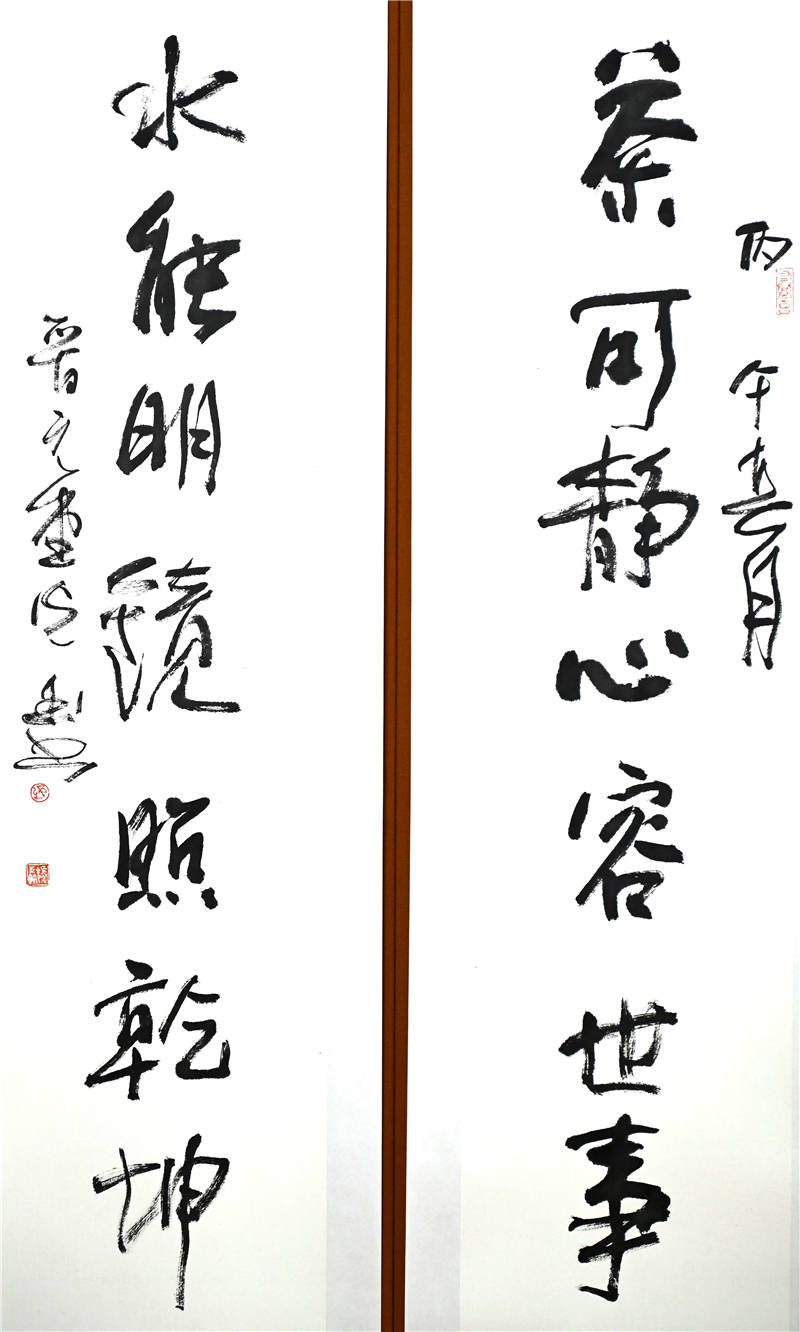 丙午春月
茶可静心容世事
水能明镜照乾坤
晋元